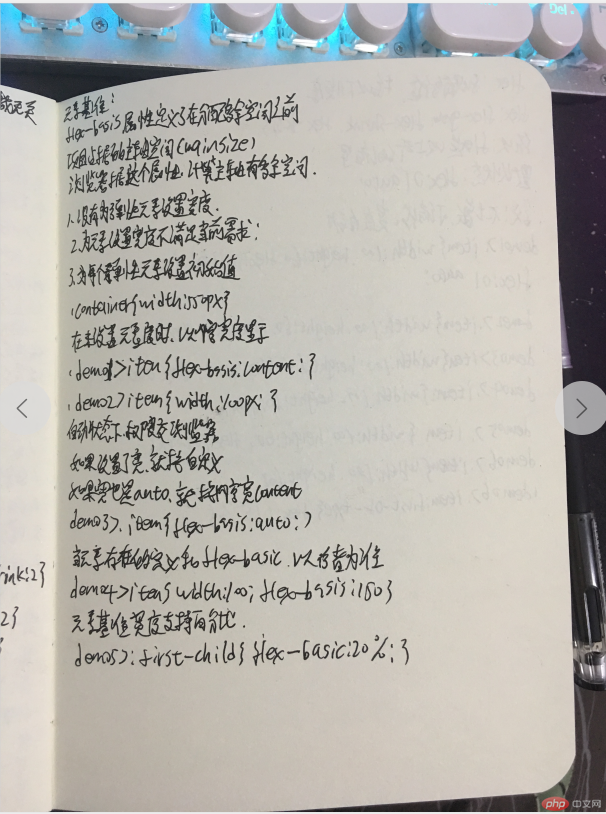 元素基值:
flex-basis属性定义了在分配多余空间之前
项目占据的主轴空间(mainsize)
浏览器根据这个属性,计算主轴是否有多余空间.
1.没有为弹性元素设置宽度.
2.为元素设置宽度不满足当前需求:
3.为每个弹性元素设置初始值
.container{width:550px}
在未设置元素宽度时,以内容宽度显示
.demo1>item{flex-basis:content;}
.demo2>item{width:100px;}
自动状态下,权限交浏览器
如果设置了宽,就按自定义
如果宽也是auto,就按内容宽content
demo3>.item{flex-basis:auto;}
当元素存在自定义和flex-basic,以后者为准
demo4>item{width:100;flex-basis:180}
元素基值宽度支持百分比.
demo5>:first-child{flex-basic:20%;}
rink:2}
2}
php 中文网